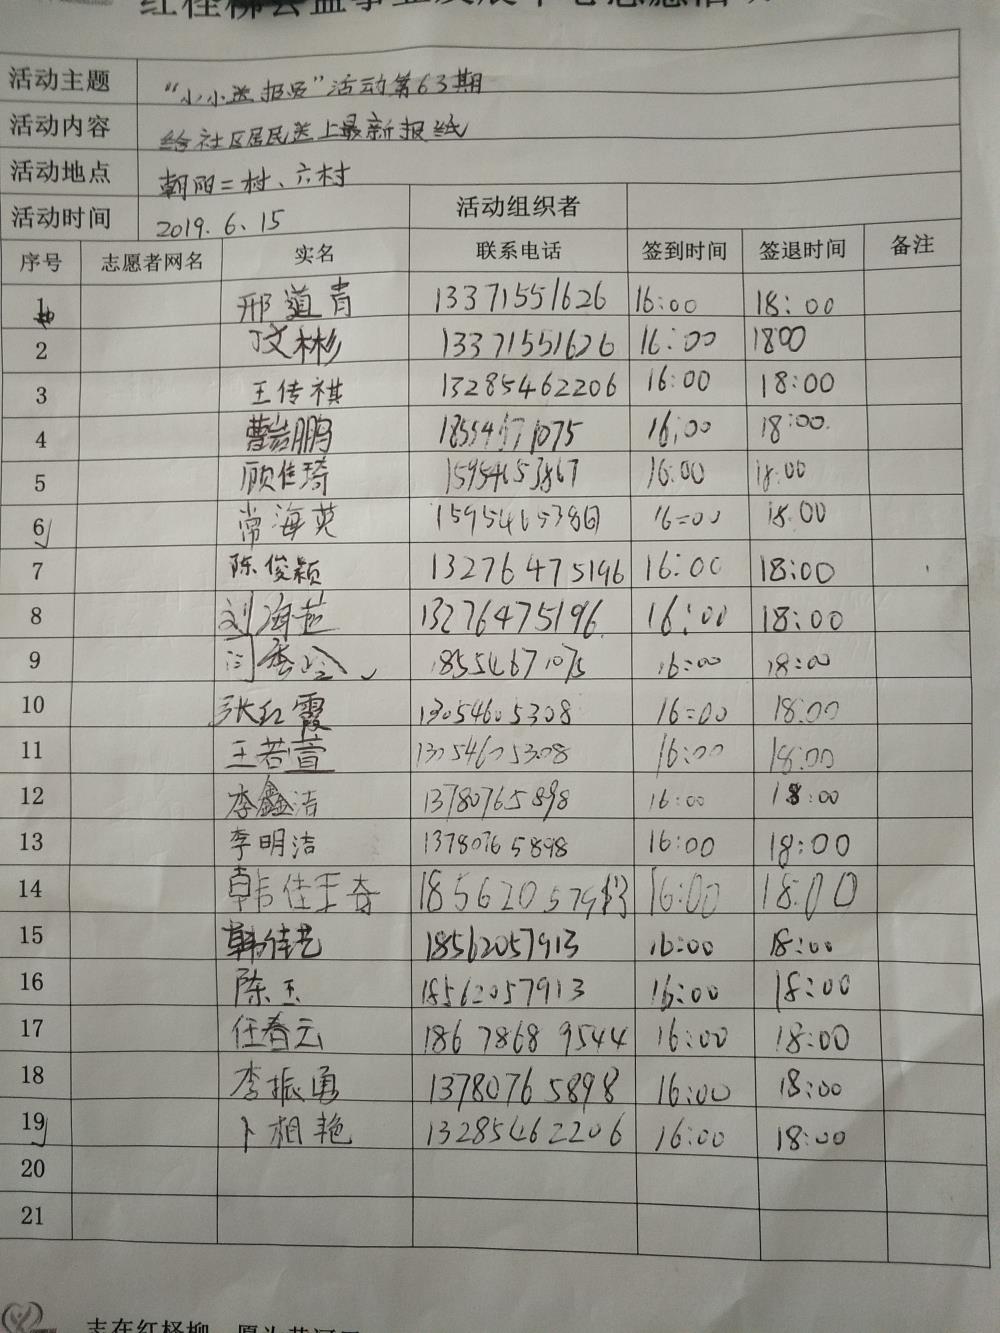 活动主题 “小小送报员”活动第63期
活动内容 给社区居民送上最新报纸
活动地点 朝阳二村、六村
活动时间 2019.6.15 活动组织者
序号 志愿者网名 实名 联系电话 签到时间 签退时间 备注
1 邢道青 13371551626 16:00 18:00
2 丁文彬 13371551626 16:00 1800
3 王传祺 13285462206 16:00 18:00
4 曹岩鹏 18554671075 16:00 18:00
5 顾佳琦 15954653867 16:00 18:00
6 常海英 16=00 18.00
7 陈俊颖 13276475196 16:00 18:00
8 刘海燕 13276475196 16:00 18:00
9 18554671075 16:00 18:00
10 张红霞 13054605308 16=00 18:00
11 王若萱 13054605308 16:00 18:00
12 李鑫洁 13780765898 16:00 18:00
13 李明洁 13780765898 16:00 18:00
14 韩佳琦 16:00 18:00
15 韩佳艺 18562057913 16:00 18:00
16 陈玉 18562057913 16:00 18:00
17 任春云 186 7868 9544 16:00 18:00
18 李振勇 13780765898 16:00 18:00
19 卜相艳 13285462206 16:00 18:00
20
21